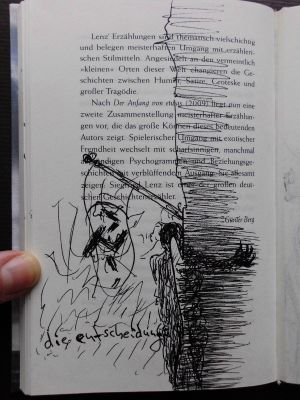 Lenz' Erzählungen sind thematisch vielschichtig
und belegen meisterhaften Umgang mit erzähleri-
schen Stilmitteln. Angesiedelt an den vermeintlich
«kleinen» Orten dieser Welt changieren die Ge-
schichten zwischen Humor, Satire, Groteske und
großer Tragödie.
Nach Der Anfang von etwas (2009) liegt nun eine
zweite Zusammenstellung meisterhafter Erzählun-
gen vor, die das große Können dieses bedeutenden
Autors zeigt. Spielerischer Umgang mit exotischer
Fremdheit wechselt mit scharfsinnigen, manchmal
abgründigen Psychogrammen und Beziehungsge-
schichten mit verblüffendem Ausgang. Sie allesamt
zeigen: Siegfried Lenz ist einer der großen deut-
schen Geschichtenerzähler.
Günter Berg
die entscheidung